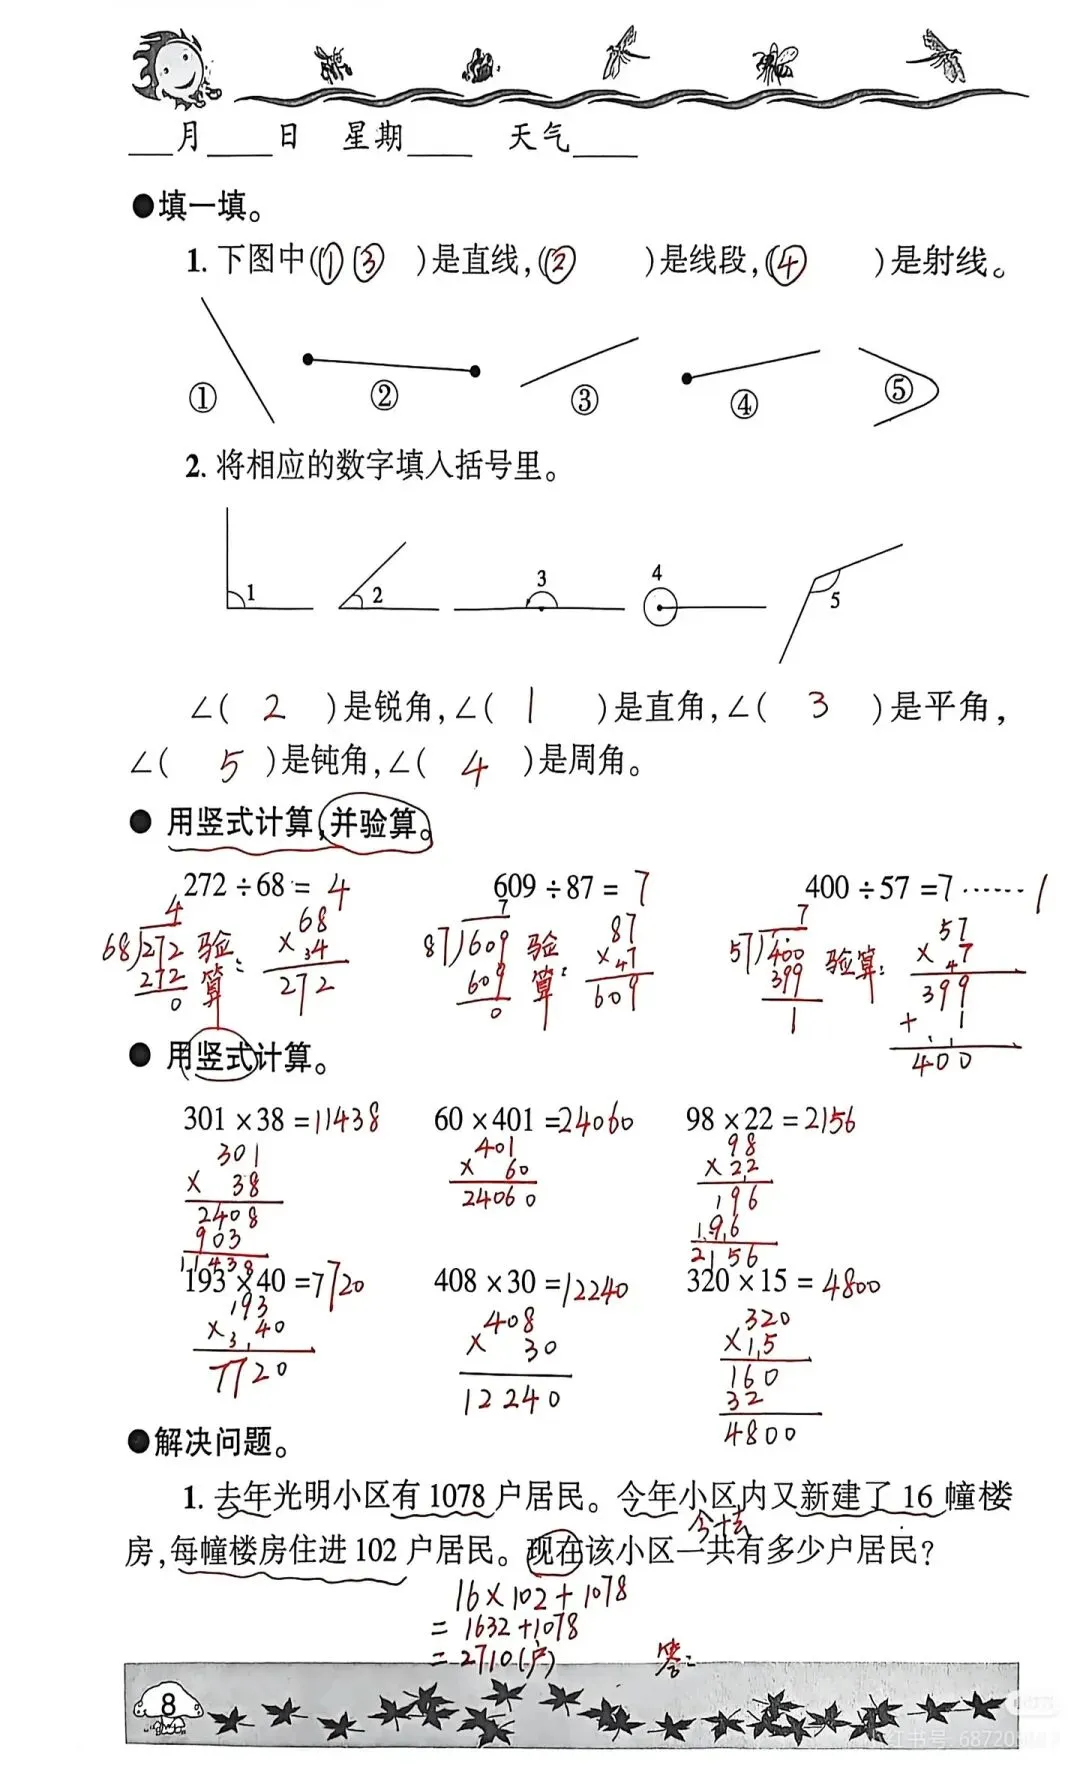 月 日 星期 天气
●填一填。
1. 下图中(① ③ )是直线,(② )是线段,(④ )是射线。
① ② ③ ④ ⑤
2. 将相应的数字填入括号里。
1 2 3 4 5
∠( 2 )是锐角,∠( 1 )是直角,∠( 3 )是平角,
∠( 5 )是钝角,∠( 4 )是周角。
● 用竖式计算,并验算。
272÷68= 4 609÷87= 7 400÷57=7……1
4 7 7
68 272 验算: 68 87 609 验算: 87 57 400 验算: 57
272 ×34 609 ×47 399 ×47
0 272 0 609 1 399
+ 1
400
● 用竖式计算。
301×38=11438 60×401=24060 98×22=2156
301 401 98
× 38 × 60 ×22
2408 24060 196
903 196
11438 2156
193×40=7720 408×30=12240 320×15=4800
193 408 320
×3 40 × 30 ×15
7720 12240 160
32
4800
●解决问题。
1. 去年光明小区有 1078 户居民。今年小区内又新建了 16 幢楼
今+去
房,每幢楼房住进 102 户居民。现在该小区一共有多少户居民?
16×102+1078
= 1632+1078
= 2710(户) 答:
8